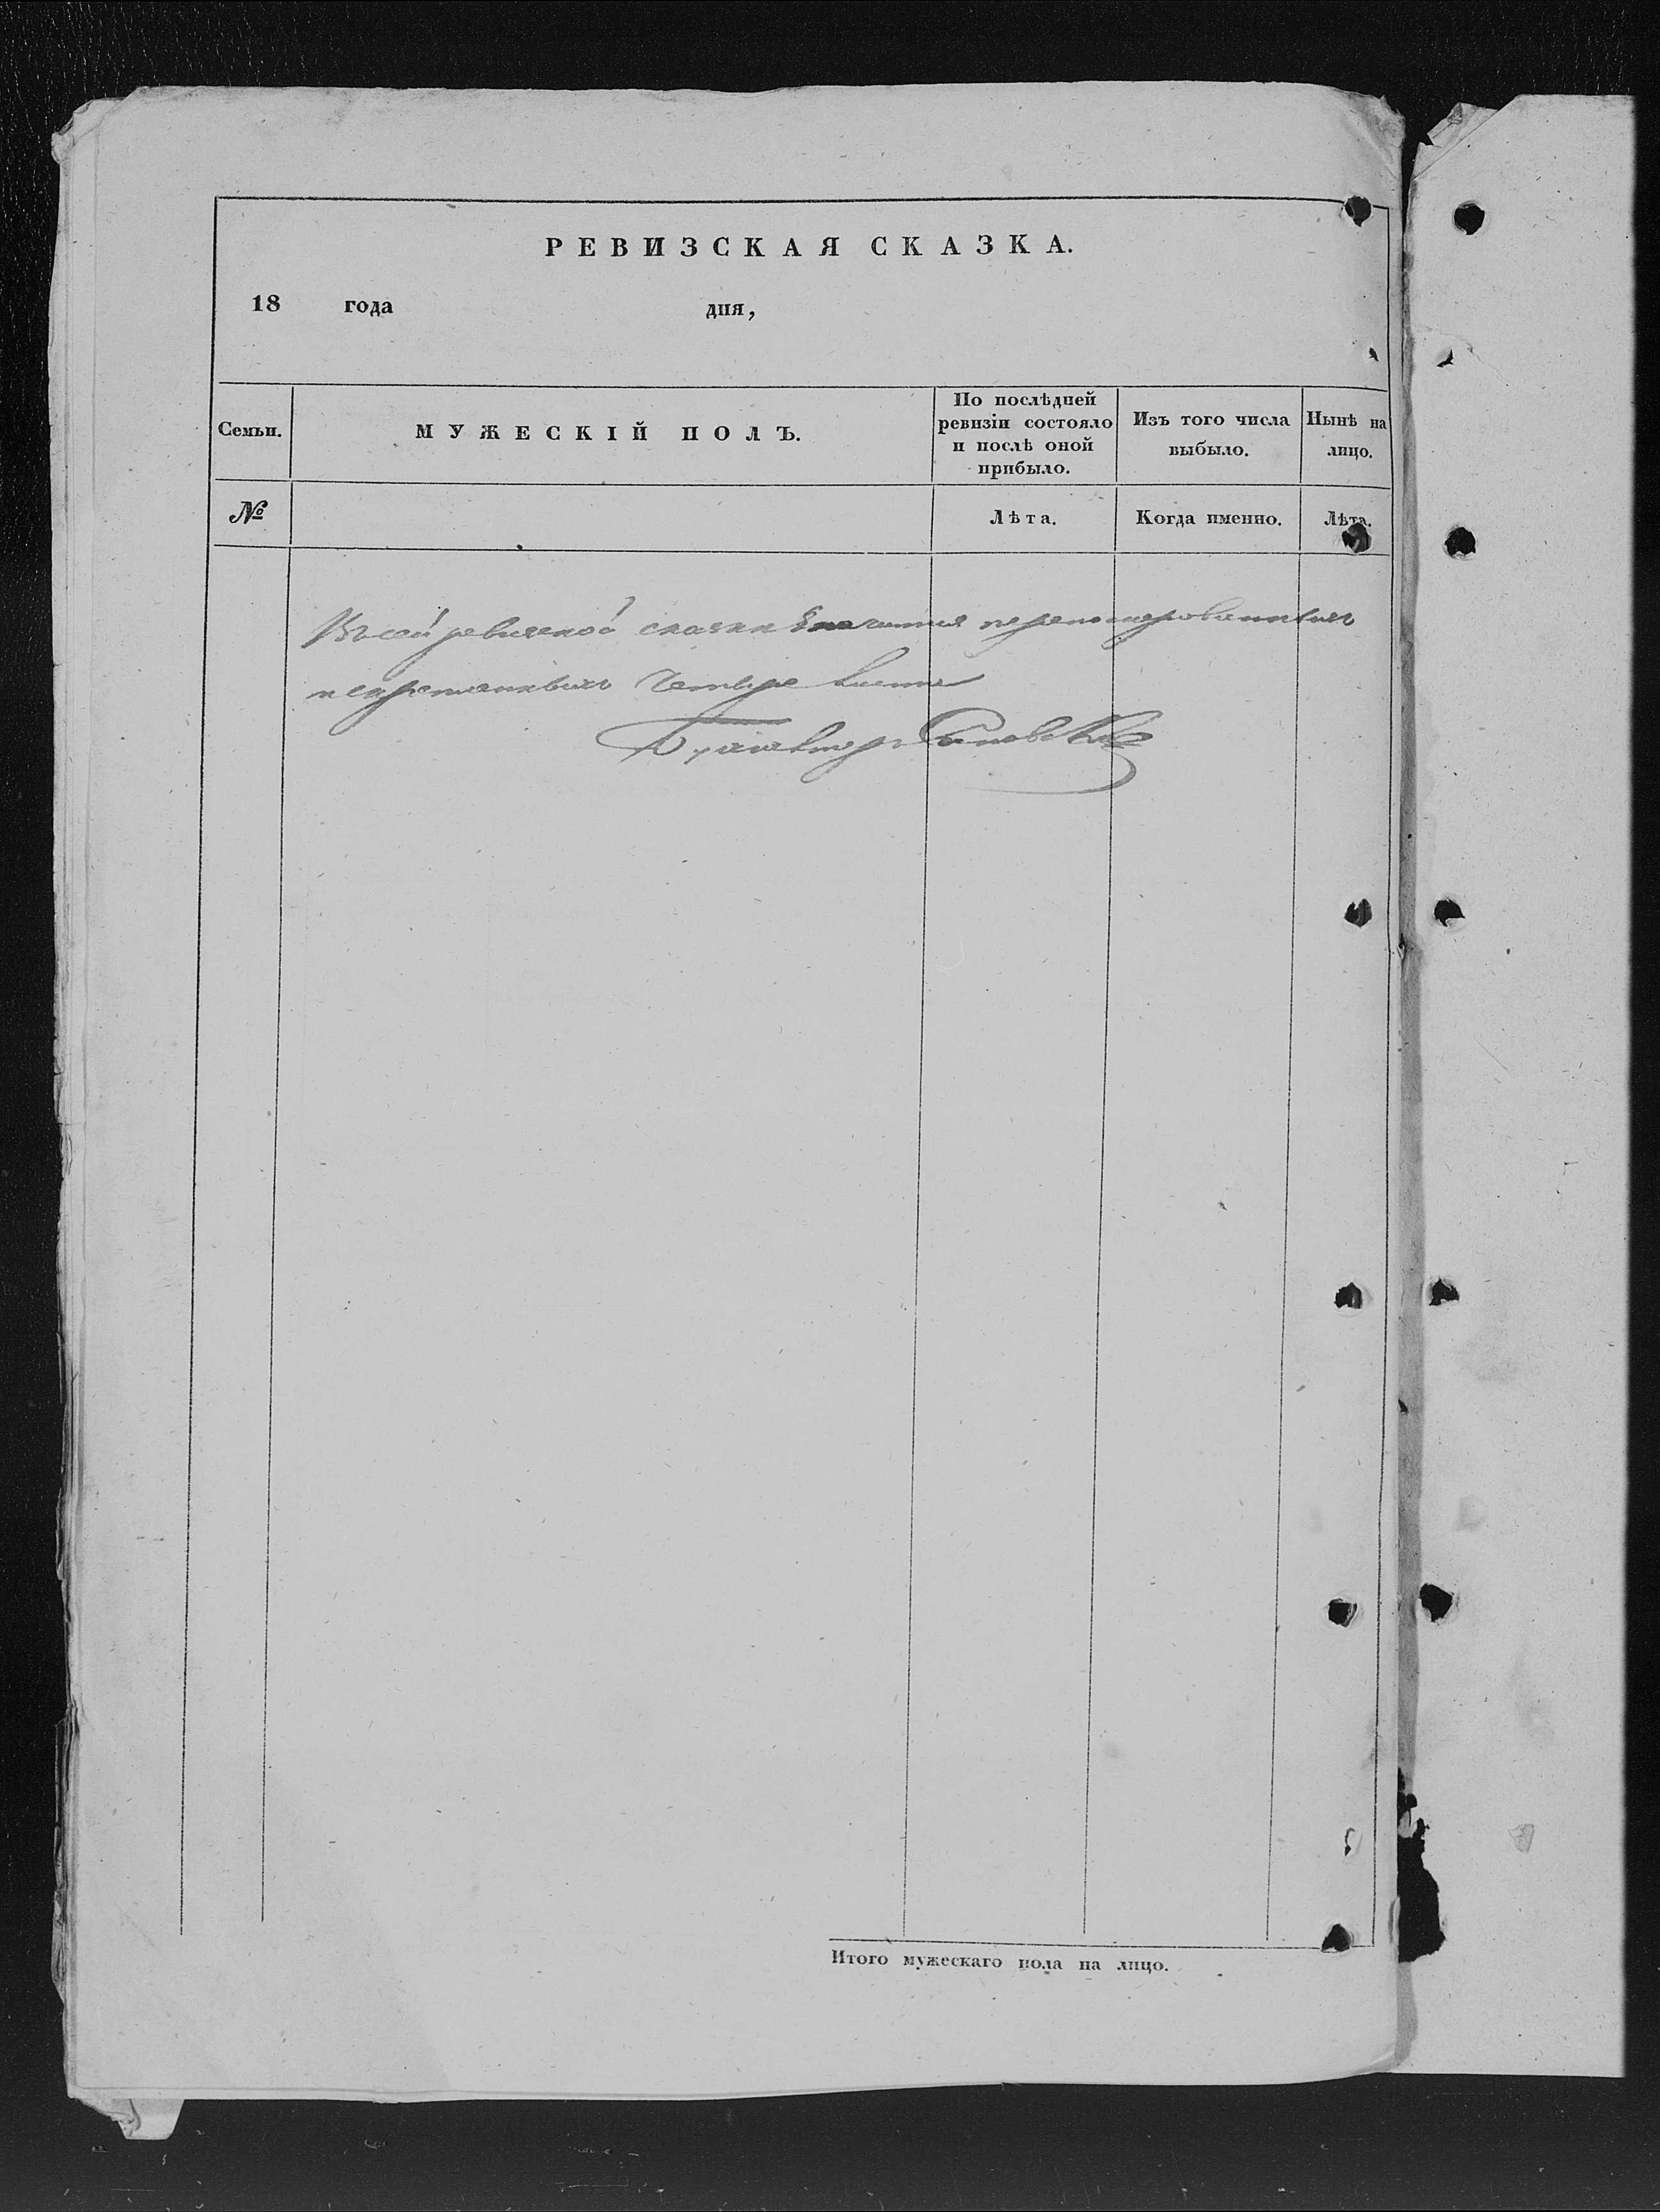 РЕВИЗСКАЯ СКАЗКА.
18 года дня,
Семьи.
МУЖЕСКІЙ ПОЛЪ.
По послѣдней
ревизіи состояло
и послѣ оной
прибыло.
Изъ того числа
выбыло.
Нынѣ на
лицо.
№
Лѣта.
Когда именно.
Лѣта.
Въ сей ревизской сказки значится перенумерованныхъ
и скрепленныхъ Четыре листа
Бухгалтеръ
Итого мужескаго пола на лицо.